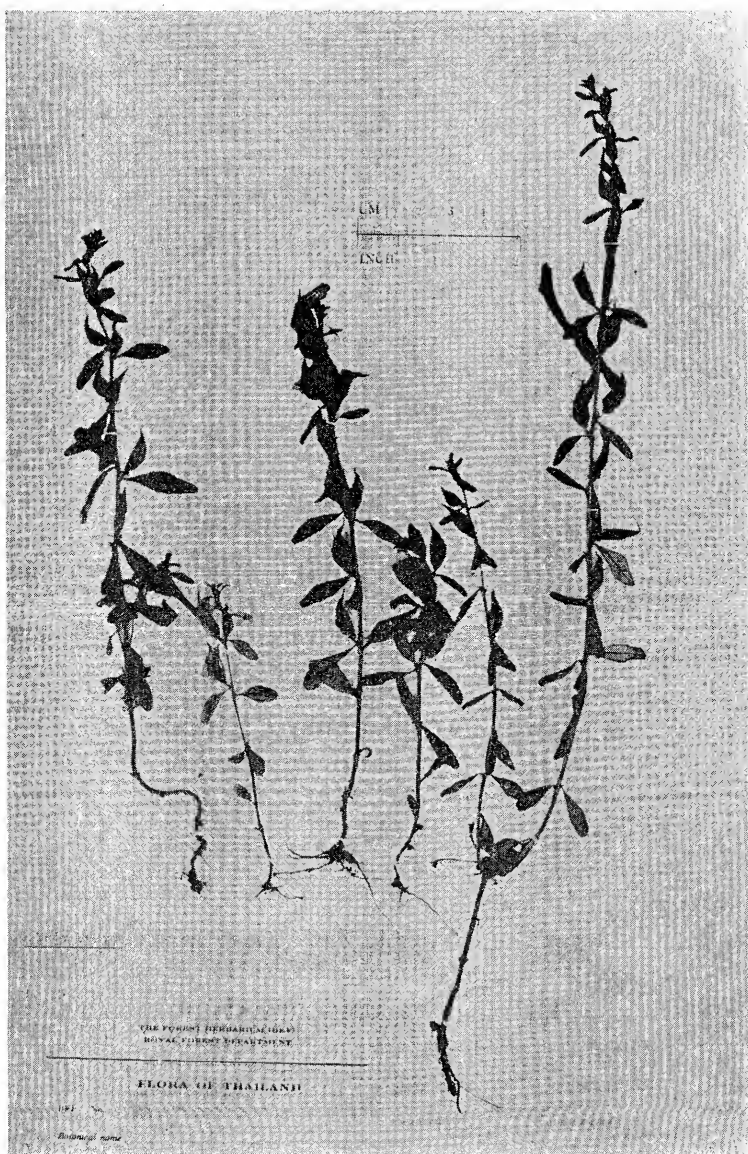 CM
INCH
THE FOREST HERBARIUM (BKF)
ROYAL FOREST DEPARTMENT
FLORA OF THAILAND
BKF No.
Botanical name